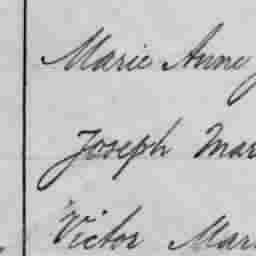 Marie Anne
Joseph Mar
Victor Mar